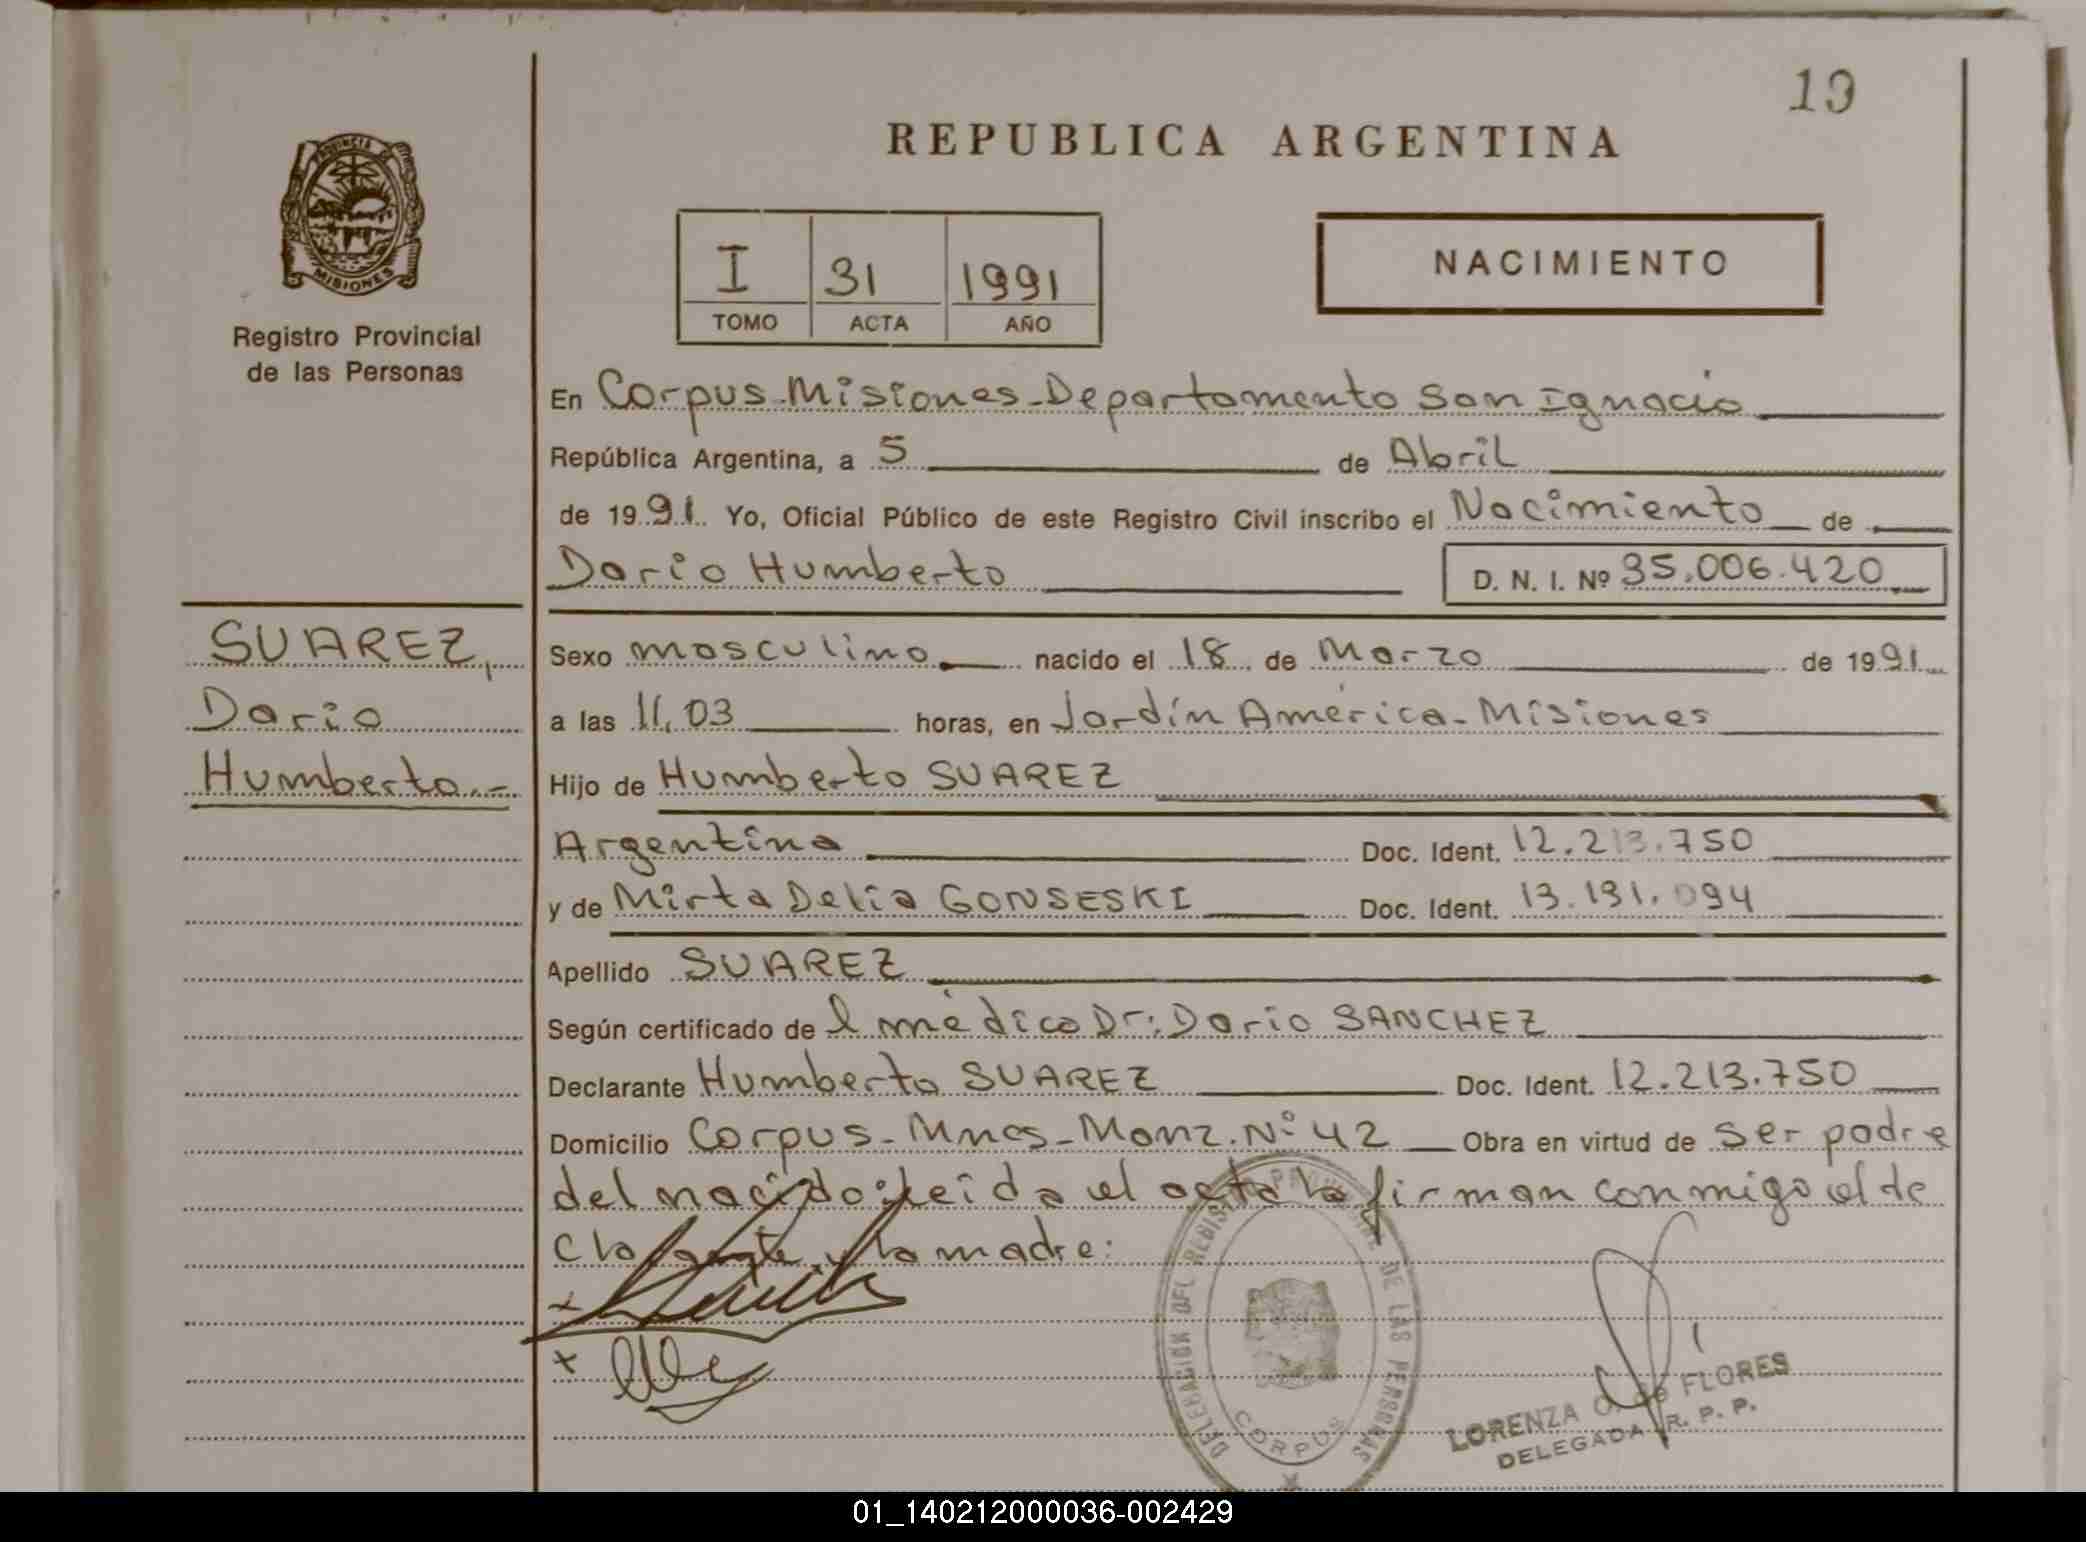 19
REPUBLICA ARGENTINA
PROVINCIA DE
MISIONES
Registro Provincial
de las Personas
I 31 1991
TOMO ACTA AÑO
NACIMIENTO
En Corpus-Misiones-Departamento San Ignacio
República Argentina, a 5 de Abril
de 1991. Yo, Oficial Público de este Registro Civil inscribo el Nacimiento de
Dario Humberto D. N. I. Nº 35.006.420
SUAREZ,
Dario
Humberto.-
Sexo masculino nacido el 18 de Marzo de 1991
a las 11,03 horas, en Jardín América-Misiones
Hijo de Humberto SUAREZ
Argentina Doc. Ident. 12.213.750
y de Mirta Delia GONSESKI Doc. Ident. 13.191.094
Apellido SUAREZ
Según certificado de l médico Dr: Dario SANCHEZ
Declarante Humberto SUAREZ Doc. Ident. 12.213.750
Domicilio Corpus-Mnes-Manz.Nº 42 Obra en virtud de ser padre
del nacido: leida el acta la firman conmigo el de
clarante y la madre:
DELEGACION DEL REGISTRO PROVINCIAL DE LAS PERSONAS
CORPUS
LORENZA O. de FLORES
DELEGADA R. P. P.
01_140212000036-002429